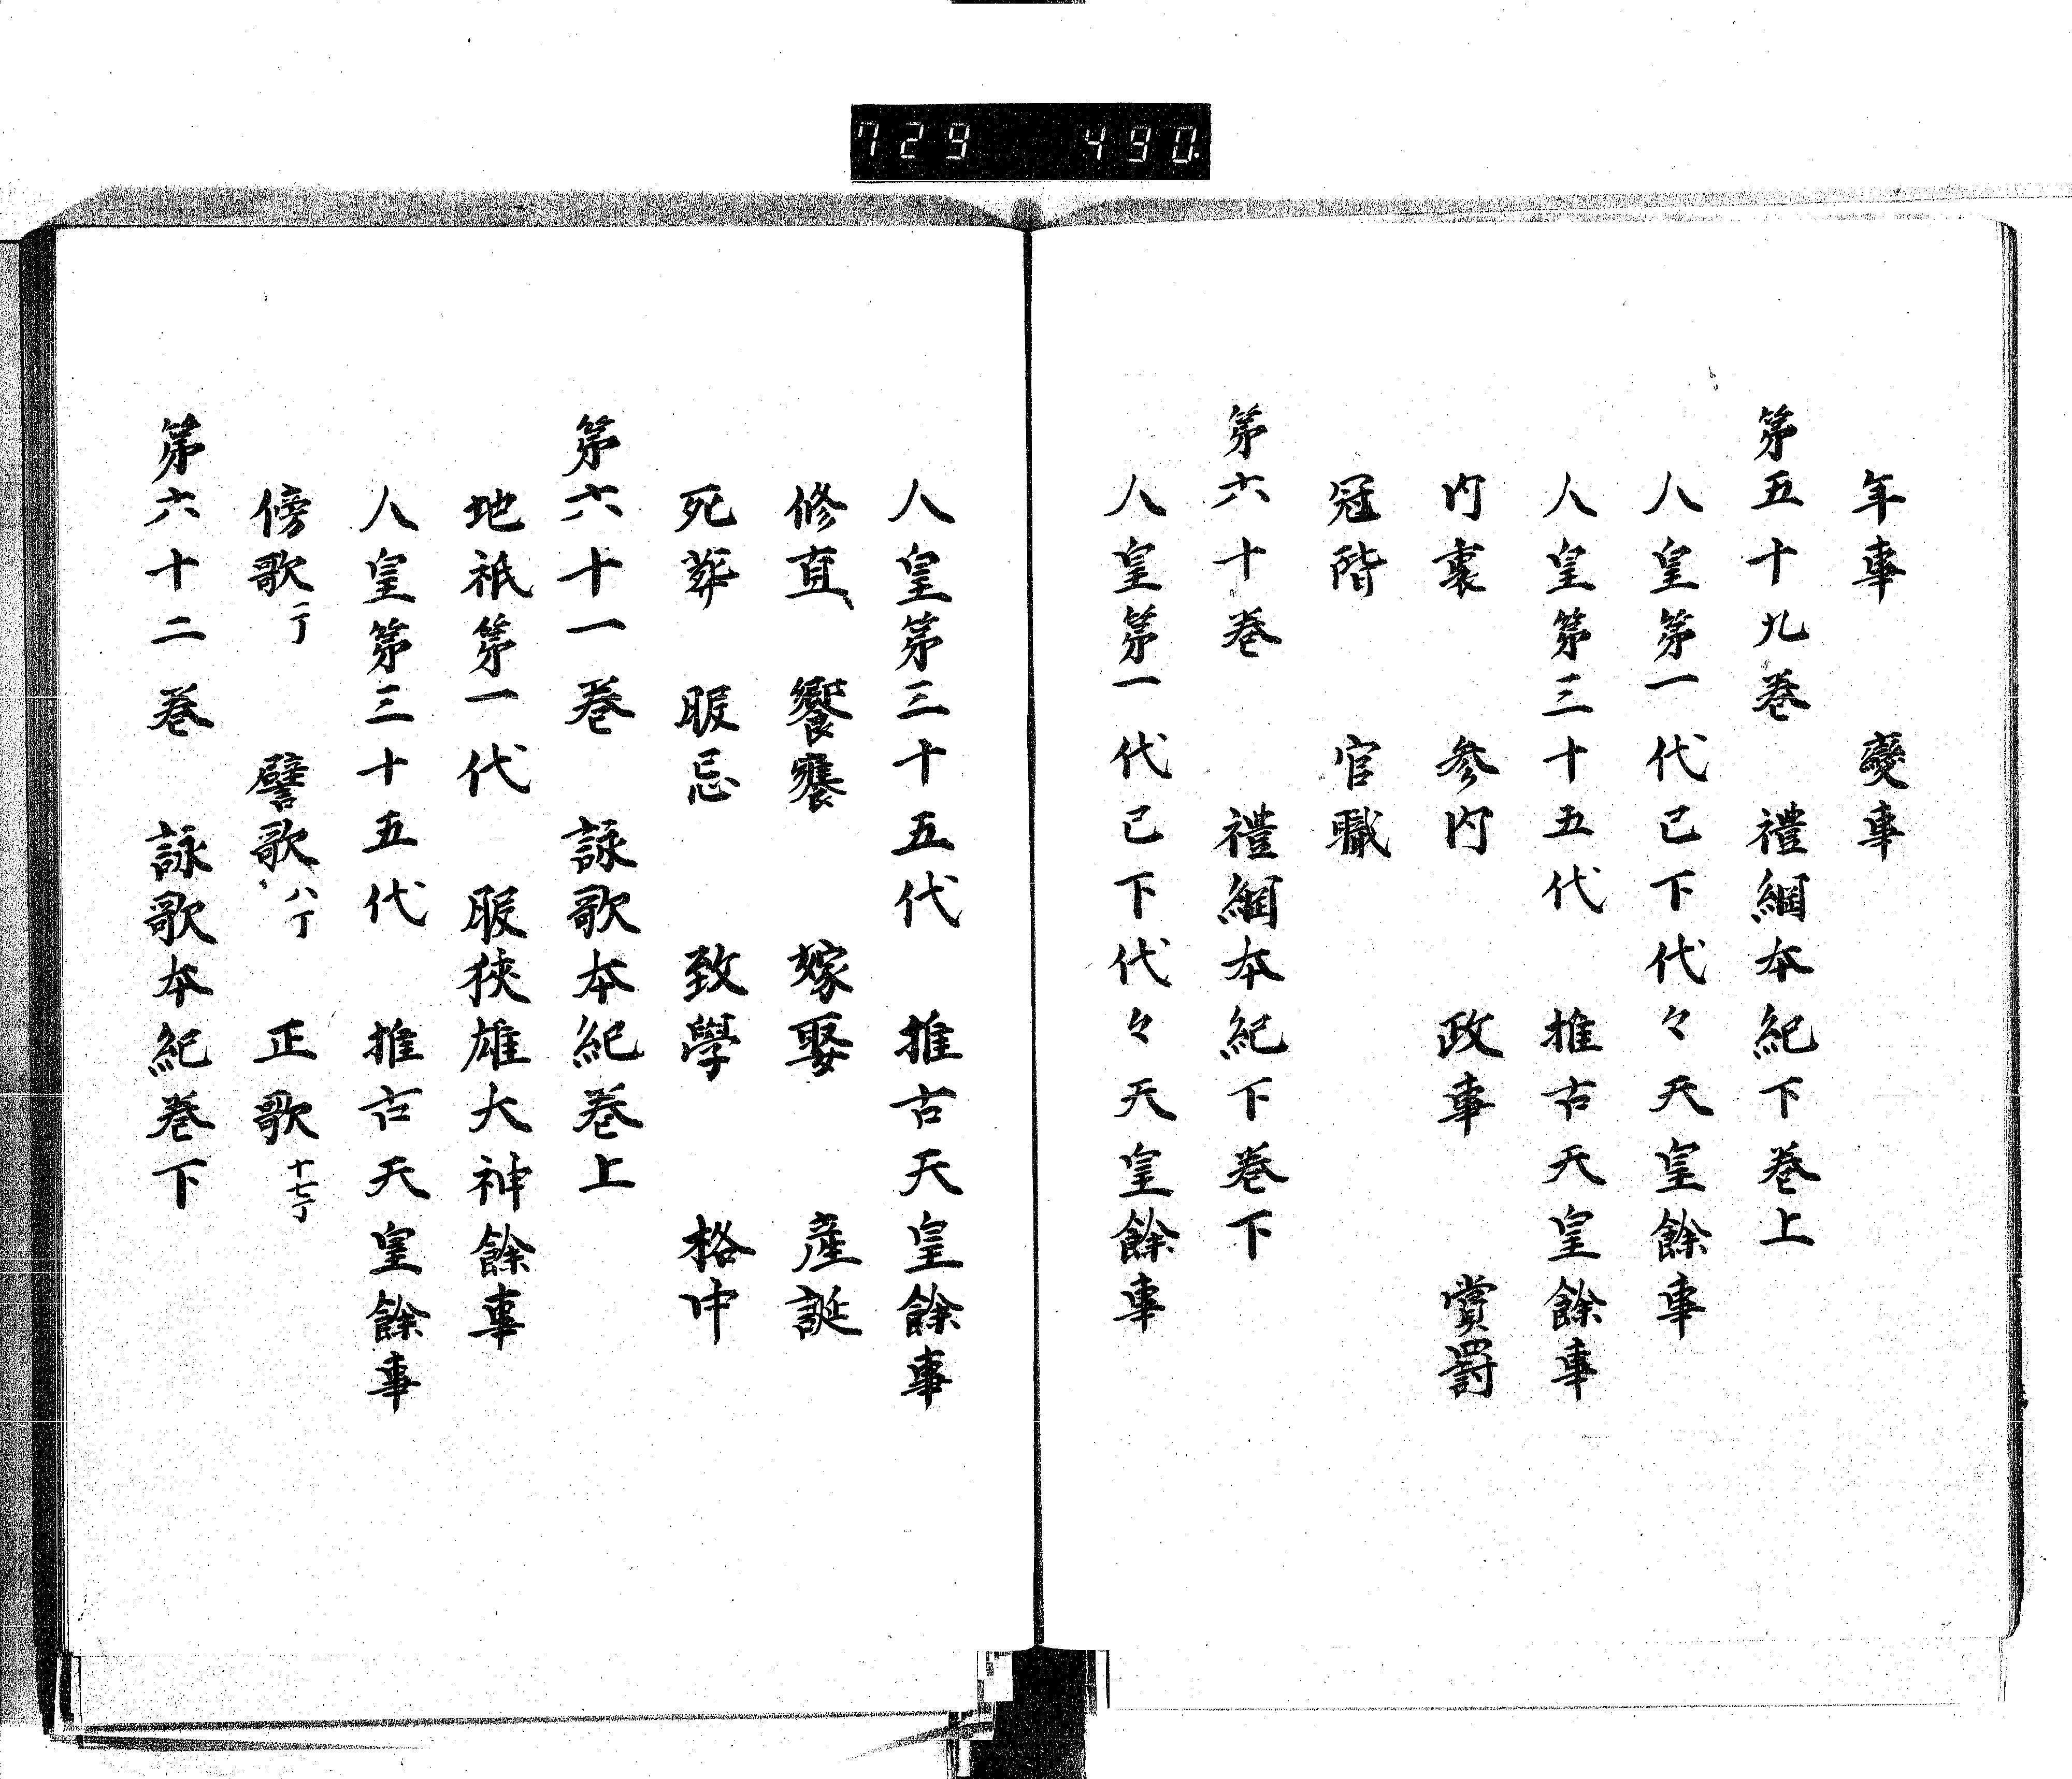 729 490
年事 變事
第五十九巻 禮綱本紀下巻上
人皇第一代已下代々天皇餘事
人皇第三十五代 推古天皇餘事
内裏 参内 政事 賞罰
冠階 官職
第六十巻 禮綱本紀下巻下
人皇第一代已下代々天皇餘事
人皇第三十五代 推古天皇餘事
修直 饗饔 嫁娶 産誕
死葬 服忌 致學 格中
第六十一巻 詠歌本紀巻上
地祇第一代 服狹雄大神餘事
人皇第三十五代 推古天皇餘事
傍歌二丁 譬歌八丁 正歌十七丁
第六十二巻 詠歌本紀巻下